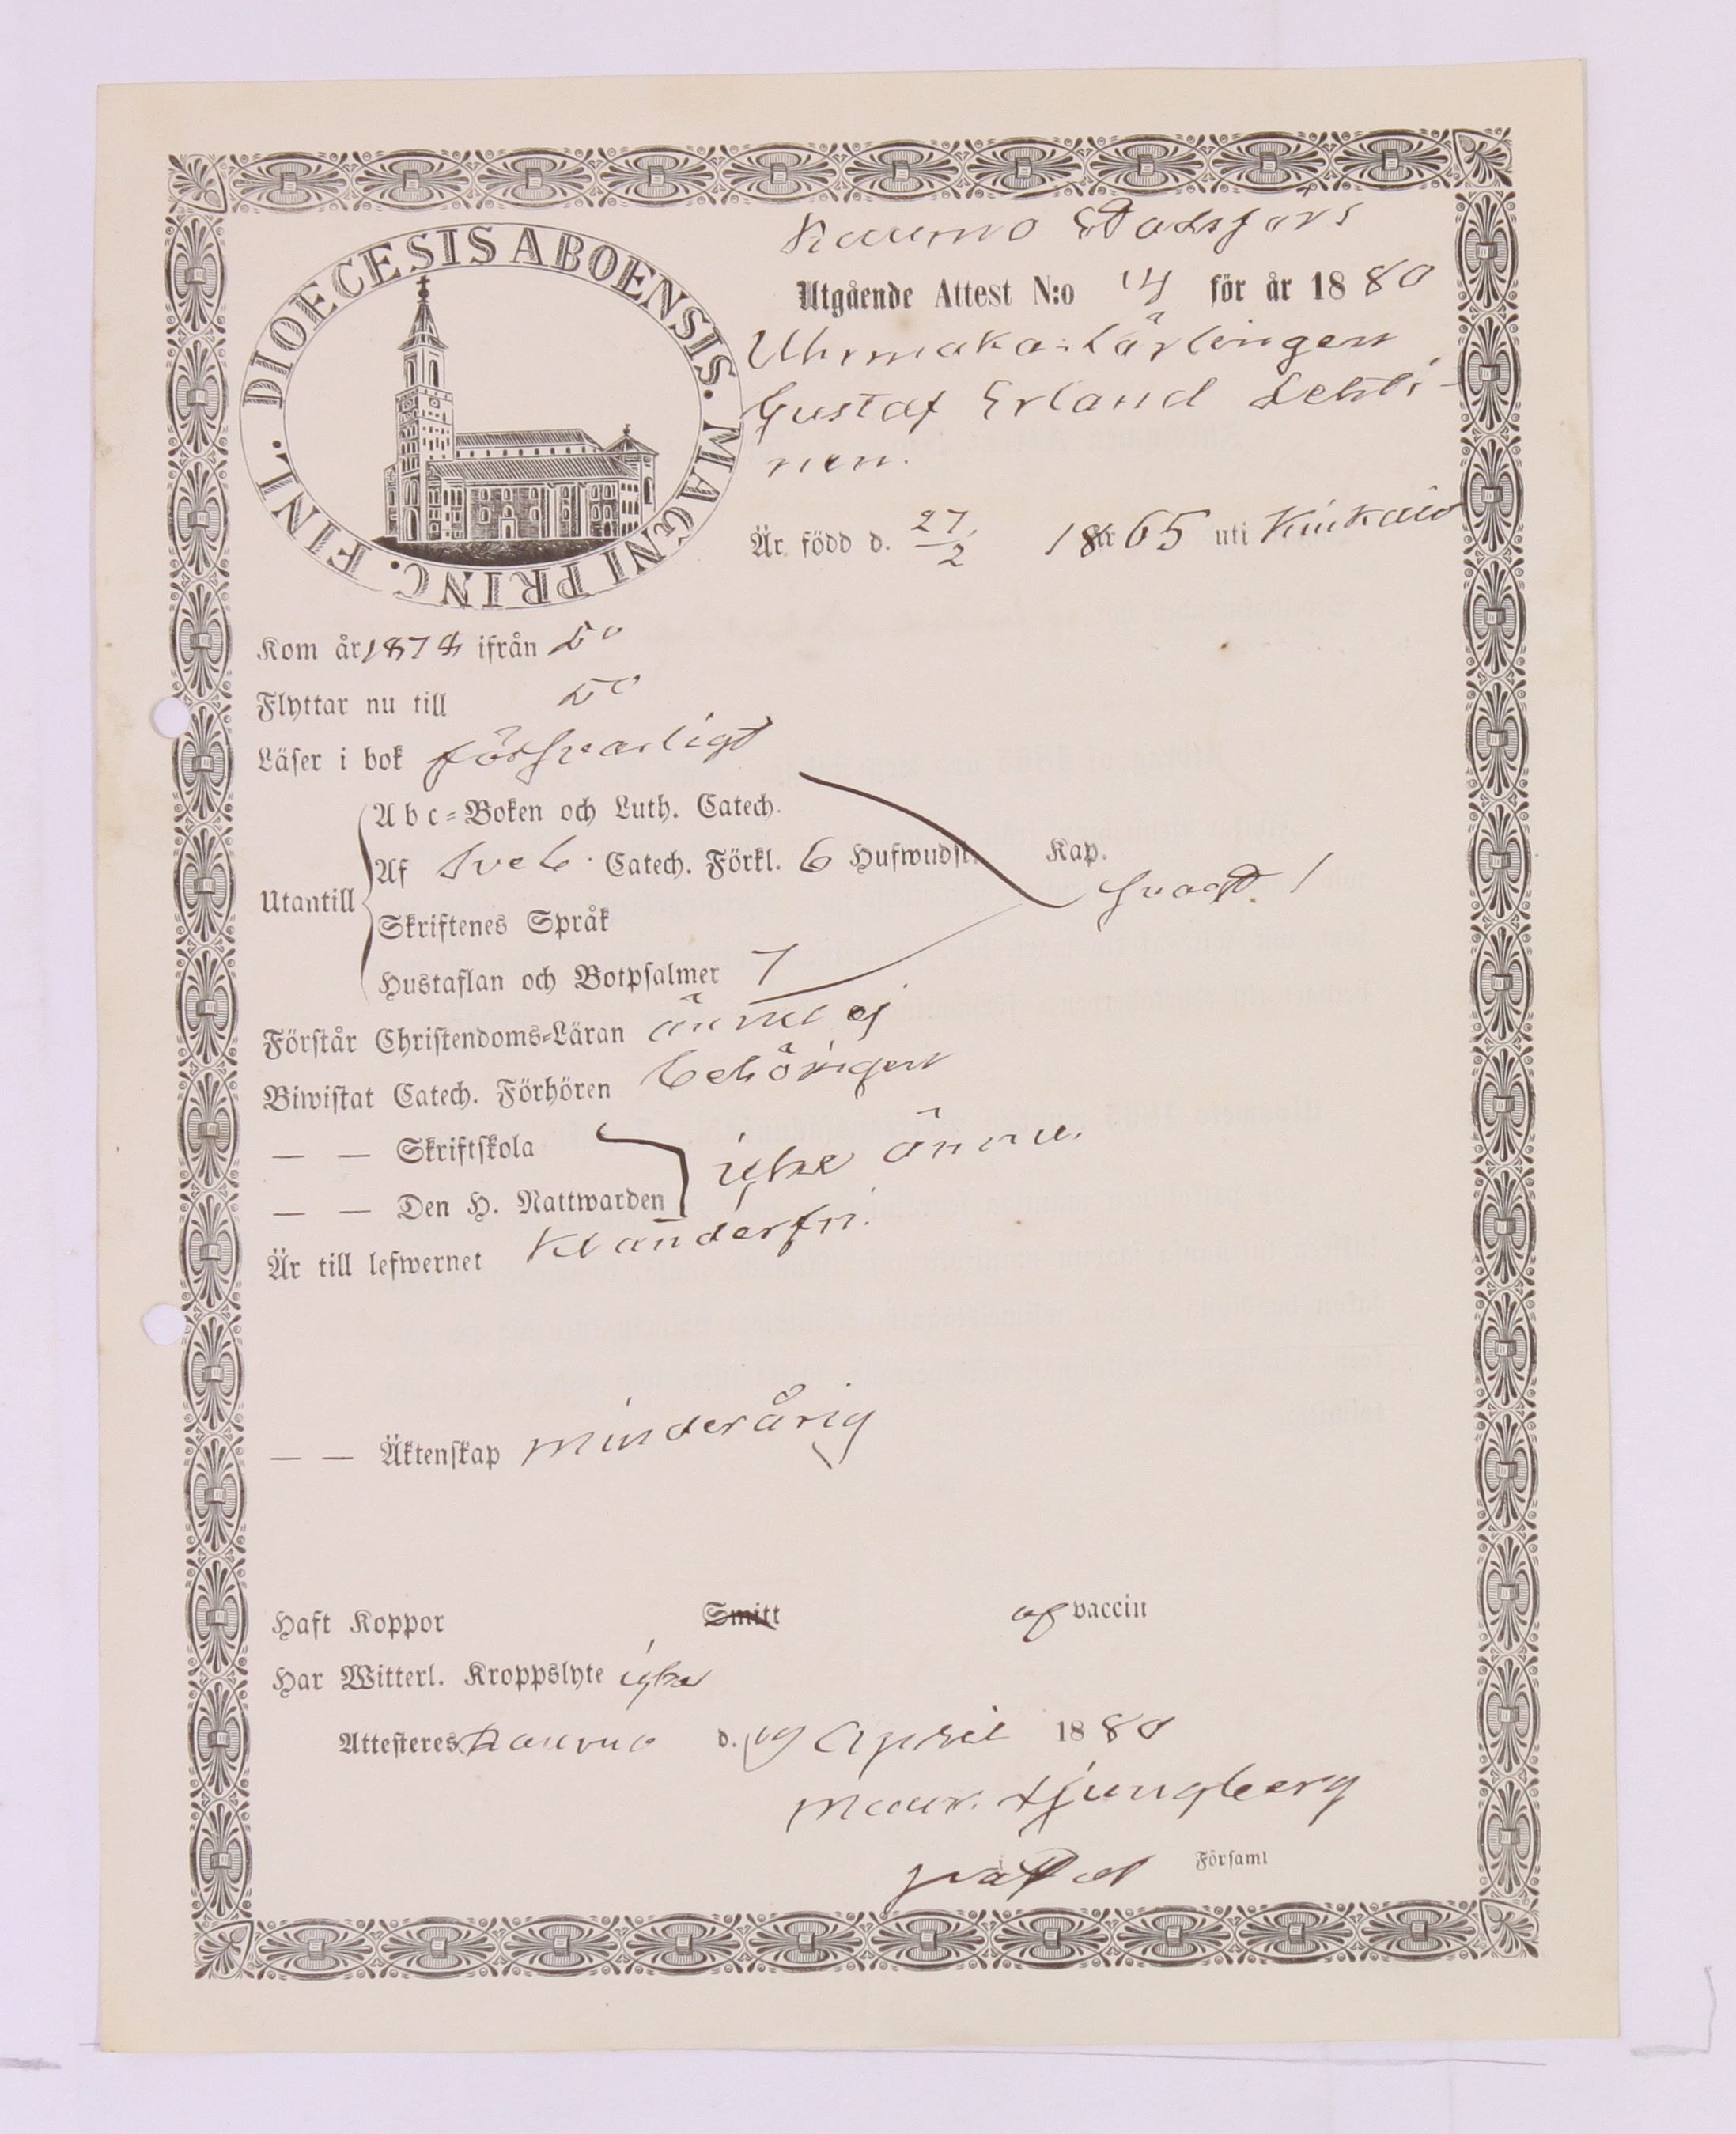 DIOECESIS ABOENSIS. MAGNI PRINC. FINL.
Raumo Stadsförs
Utgående Attest N:o 14 för år 1880
Uhrmakarlärlingen
Gustaf Erland Lehti-
nen.
Är född d. 27/2 1865 uti Kiukais
Kom år 1878 ifrån Do
Flyttar nu till Do
Läser i bok försvarligt
Abc-Boken och Luth. Catech.
Af Sveb. Catech. Förkl. 6 Hufwudst. Kap.
svagt
Utantill
Skriftenes Språk
Hustaflan och Botpsalmer 7
Förstår Christendoms-Läran ännu ej
Biwistat Catech. Förhören behörigen
— — Skriftskola
icke ännu.
— — Den H. Nattwarden
Är till lefwernet klanderfri.
— — Äktenskap minderårig
Haft Koppor Smitt af vaccin
Har Witterl. Kroppslyte icke
Attesteres Raumo d. 19 April 1880
Maur. Ljungberg
i Församl